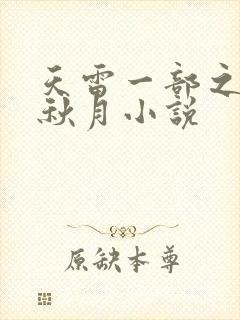 天雷一部之
秋月小说
原缺本尊